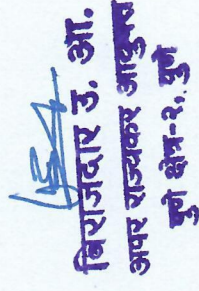 बिराजदार उ. ओ.
अपर राज्यकर आयुक्त
पुणे क्षेत्र-२, पुणे